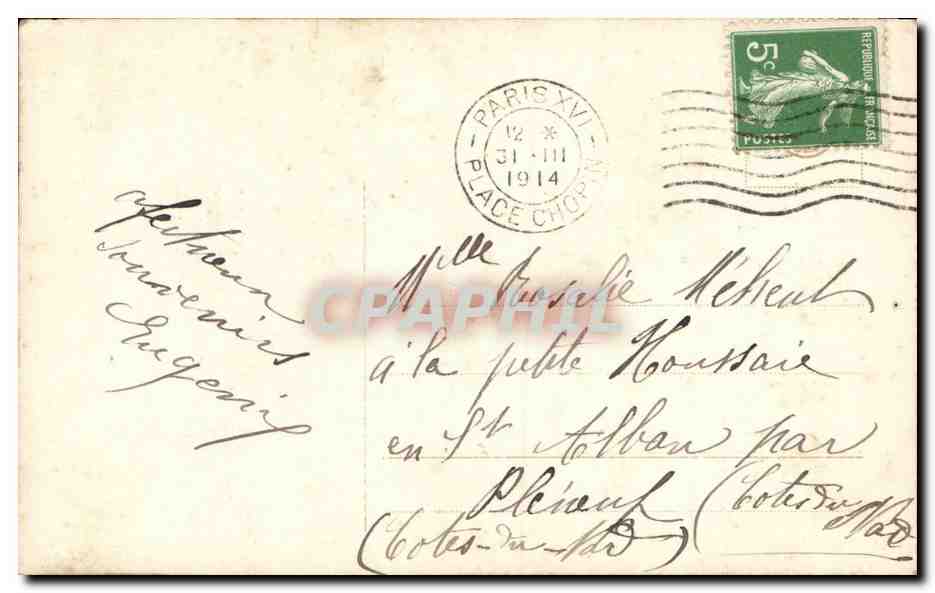 PARIS XVI
12 *
31 - III
1914
PLACE CHOPIN
5c
REPUBLIQUE FRANÇAISE
POSTES
afectueux
souvenirs
Eugenie
CPAPHIL
Mlle Rosalie Méheut
à la petite Houssaie
en St Alban par
Pléneuf (Cotes du Nord
(Cotes-du-Nord)